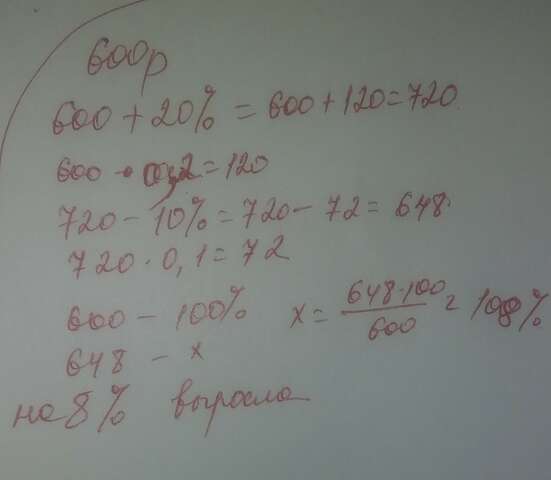 600р
600 + 20% = 600 + 120 = 720
600 · 0,2 = 120
720 - 10% = 720 - 72 = 648
720 · 0,1 = 72
600 - 100% x = 648·100/600 = 108%
648 - x
на 8% выросла